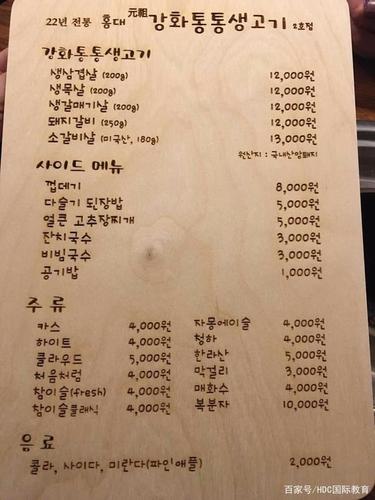 22년 전통 홍대 元祖 강화통통생고기 2호점
강화통통생고기
생삼겹살 (200g) 12,000원
생목살 (200g) 12,000원
생갈매기살 (200g) 12,000원
돼지갈비 (250g) 12,000원
소갈비살 (미국산, 180g) 13,000원
원산지 : 국내산암퇘지
사이드 메뉴
껍데기 8,000원
다슬기 된장밥 5,000원
얼큰 고추장찌개 5,000원
잔치국수 3,000원
비빔국수 3,000원
공기밥 1,000원
주 류
카스 4,000원 자몽에이슬 4,000원
하이트 4,000원 청하 4,000원
클라우드 5,000원 한라산 5,000원
처음처럼 4,000원 막걸리 3,000원
참이슬(fresh) 4,000원 매화수 4,000원
참이슬클래식 4,000원 복분자 10,000원
음 료
콜라, 사이다, 미란다(파인애플) 2,000원
百家号/HDC国际教育